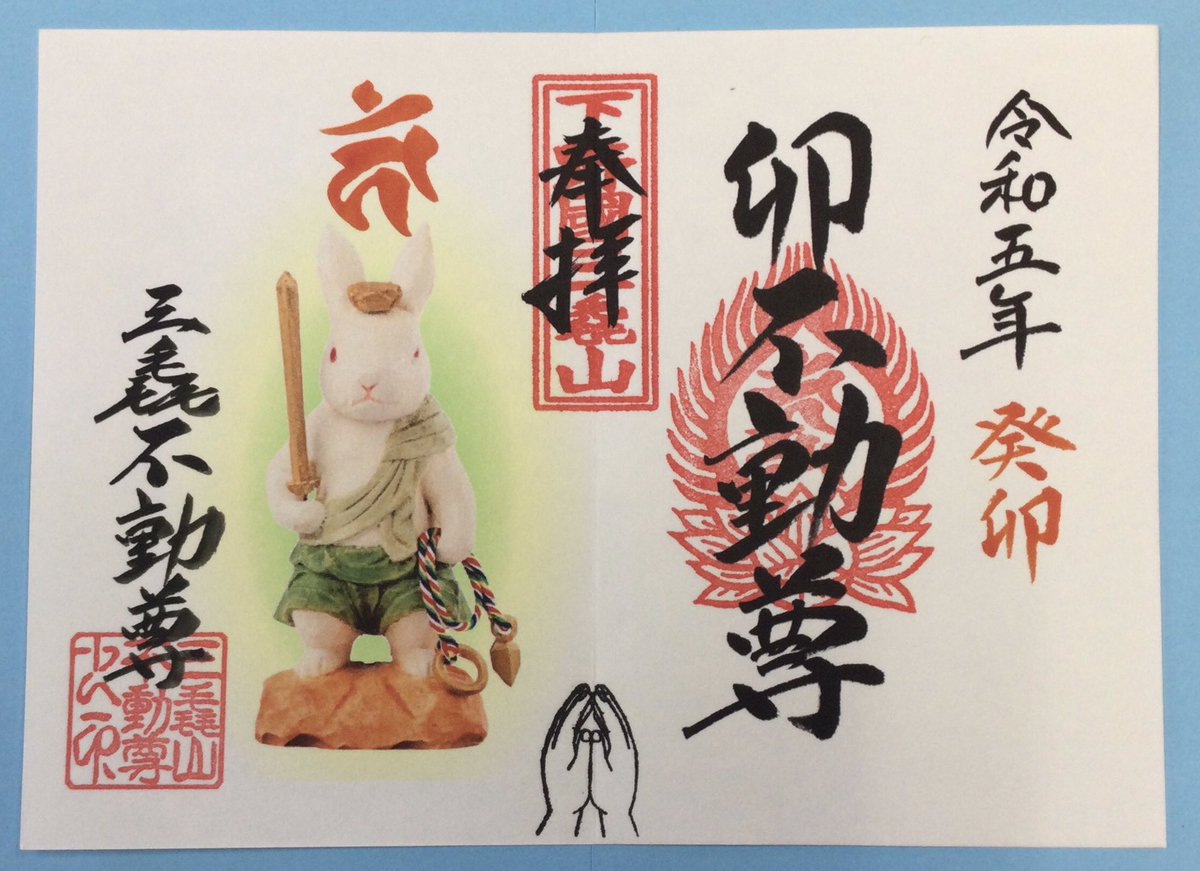 令和五年 癸卯
卯不動尊
奉拝
國三毳山
三毳不動尊
三毳山
不動尊